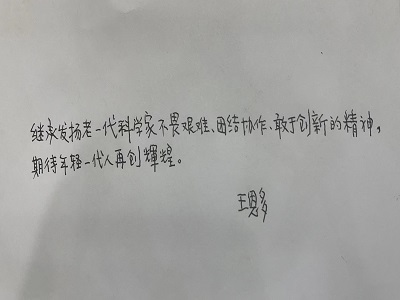 继承发扬老一代科学家不畏艰难、团结协作、敢于创新的精神，
期待年轻一代人再创輝煌。
王恩多